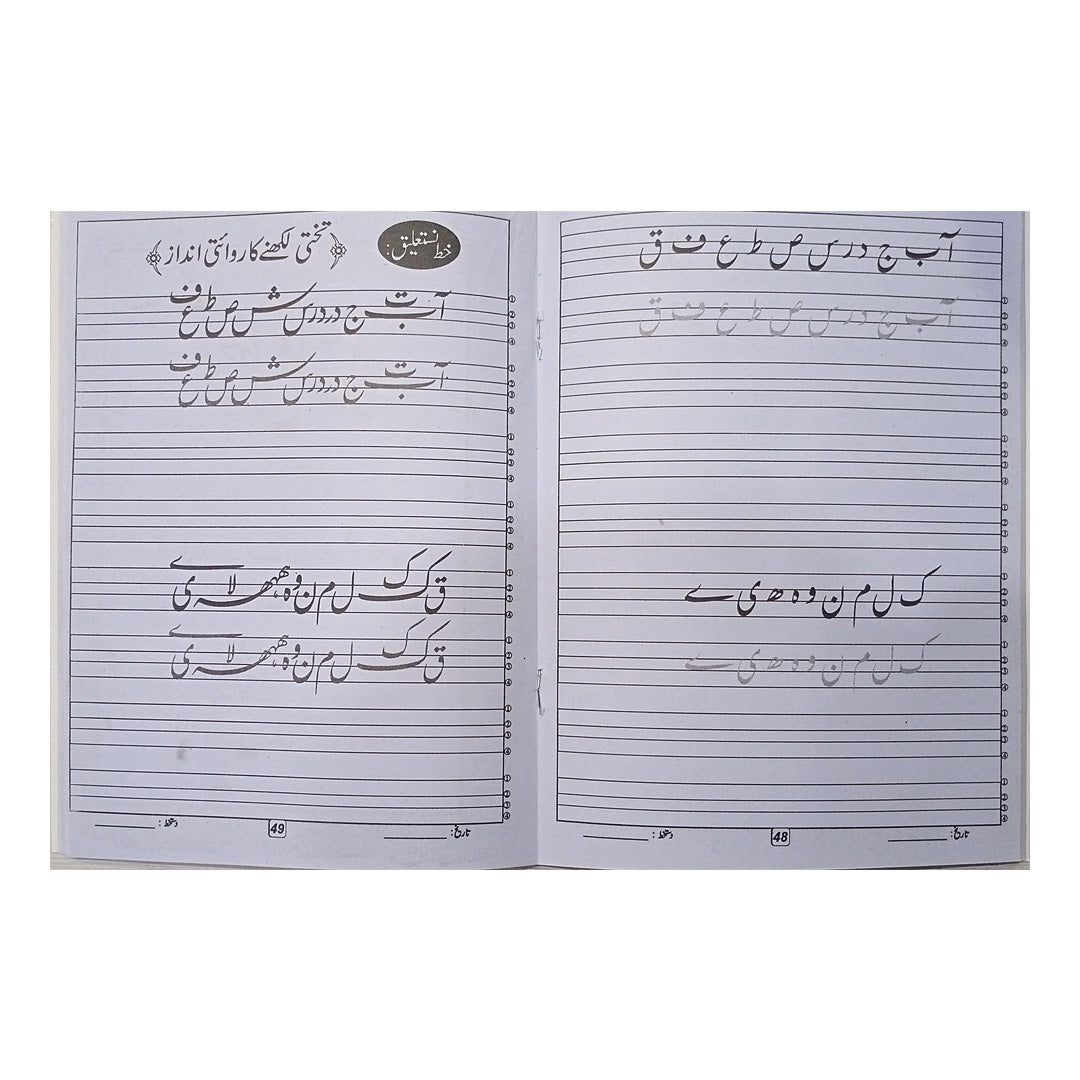 آ ب ج د ر س ص ط ع ف ق
آ ب ج د ر س ص ط ع ف ق
ک ل م ن و ہ ھ ی ے
ک ل م ن و ہ ھ ی ے
تاریخ: دستخط:
48
خط نستعلیق:
تختی لکھنے کا روائتی انداز
آ ب ت ج د ر د ر س ش ص ط ع ف
آ ب ت ج د ر د ر س ش ص ط ع ف
ق ک ک ل م ن و ہ ھ لا ی ے
ق ک ک ل م ن و ہ ھ لا ی ے
تاریخ: دستخط:
49